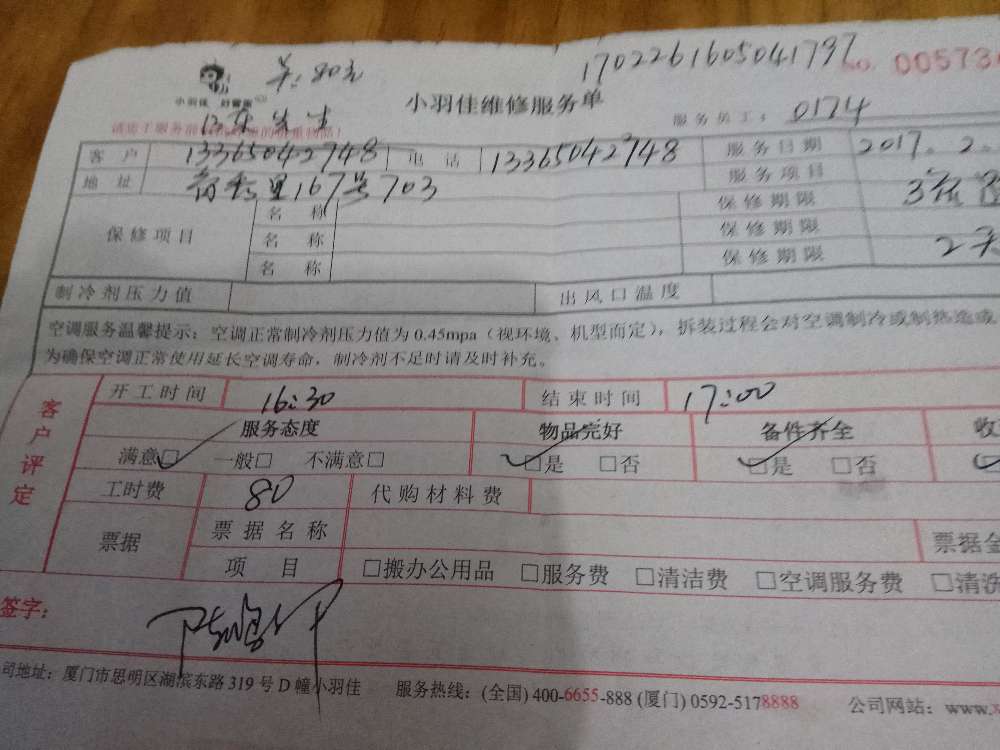 1702261605041797
共:80元
NO. 00573
小羽佳 好管家
小羽佳维修服务单
服务员工: 0174
客户 13365042748 电话 13365042748 服务日期 2017.2.
地址 167号703 服务项目
保修项目 名称 保修期限
名称 保修期限
名称 保修期限 2天
制冷剂压力值 出风口温度
空调服务温馨提示:空调正常制冷剂压力值为0.45mpa(视环境、机型而定),拆装过程会对空调制冷或制热造成
为确保空调正常使用延长空调寿命,制冷剂不足时请及时补充。
客户评定
开工时间 16:30 结束时间 17:00
服务态度 物品完好 备件齐全 收
满意□ 一般□ 不满意□ □是 □否 □是 □否
工时费 80 代购材料费
票据 票据名称 票据金
项目 □搬办公用品 □服务费 □清洁费 □空调服务费 □清洗
签字:
司地址:厦门市思明区湖滨东路319号D幢小羽佳 服务热线:(全国)400-6655-888(厦门)0592-5178888 公司网站:www.